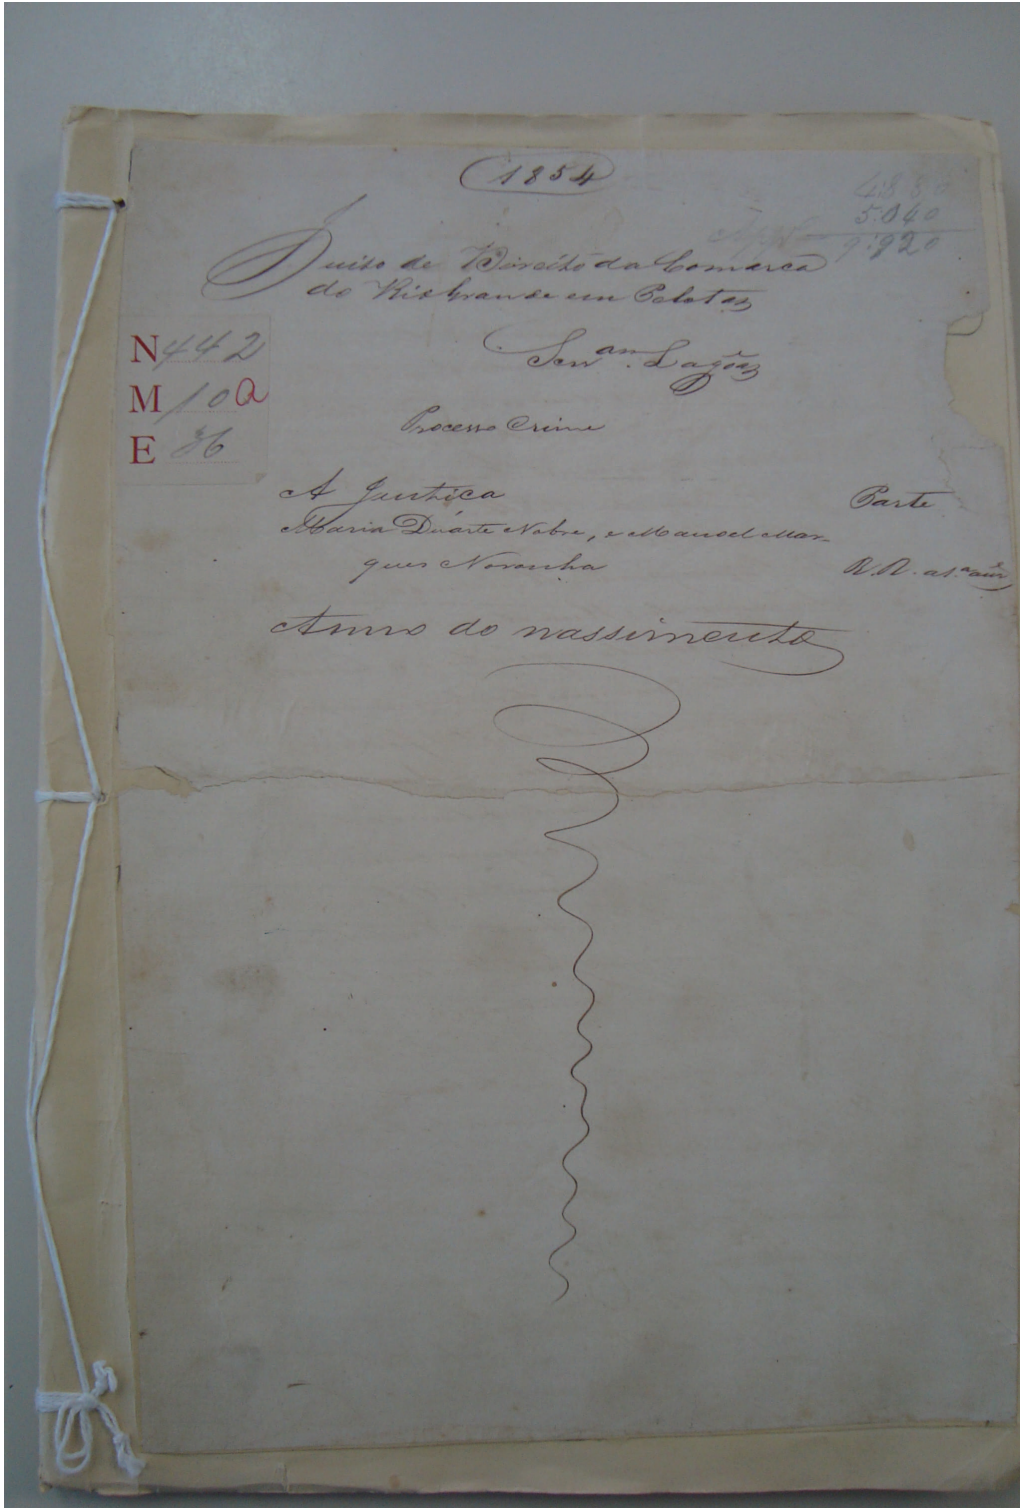 1854
4:880
5:040
9:920
Juiso de Direito da Comarca
do Rio Grande em Pelotas
Scrvam. Lagôas
N 442
M 10 a
E 36
Processo Crime
A Justiça Parte
Maria Duarte Nobre, e Manoel Mar-
ques Noronha R.R.
Anno do nassimento